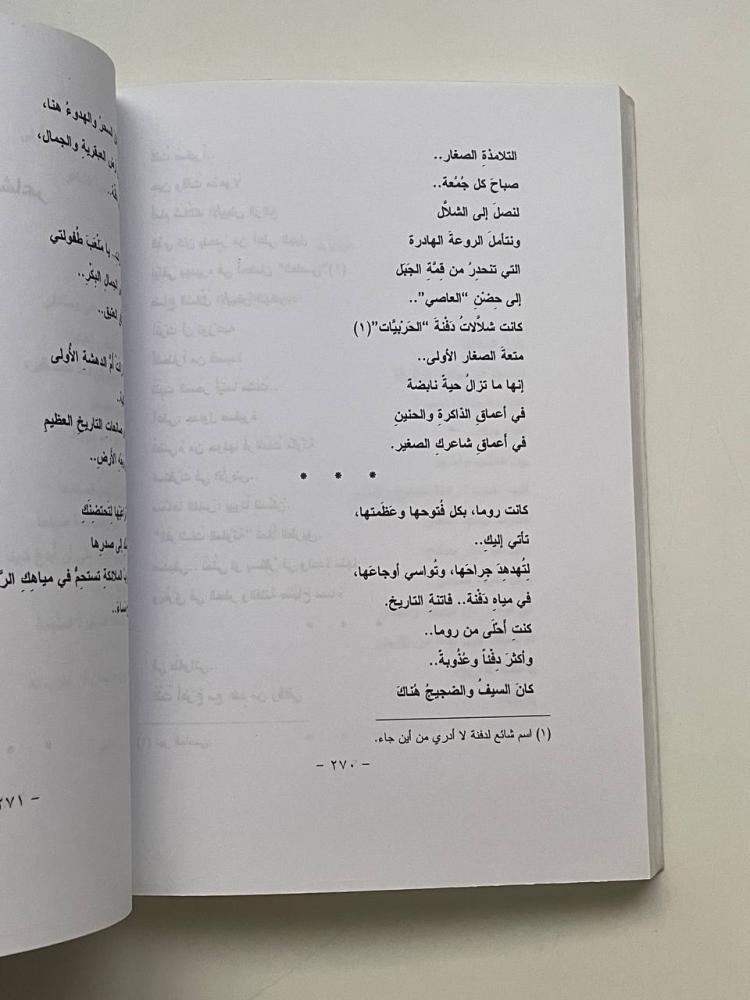 التلامذةِ الصغار..
صباحَ كل جُمُعة..
لنصلَ إلى الشلاَّل
ونتأملَ الروعةَ الهادرة
التي تنحدرُ من قِمَّةِ الجَبَل
إلى حِضْنِ "العاصي"..
كانت شلاَّلاتُ دَفْنةَ "الحَرْبيَّات"(١)
متعةَ الصغار الأولى..
إنها ما تزالُ حيةً نابضة
في أعماقِ الذاكرةِ والحنين
في أعماقِ شاعركِ الصغير.
* * *
كانت روما، بكل فُتوحها وعَظَمتها،
تأتي إليكِ..
لِتُهدهِدَ جراحَها، وتُواسي أوجاعَها،
في مياهِ دَفْنة.. فاتنةِ التاريخ.
كنتِ أَحْلَى من روما..
وأكثرَ دِفْئاً وعُذُوبةً..
كانَ السيفُ والضجيجُ هُناكَ
(١) اسم شائع لدفنة لا أدري من أين جاء.
- ٢٧٠ -
السحرُ والهدوءُ هنا،
العبقريةِ والجمال،
يا مَلْعَبَ طُفولتي
الجمالِ البِكْرِ..
أُمَّ الدهشةِ الأُولى
صانعاتِ التاريخِ العظيمِ
الأرضِ..
لِتحتضِنَكِ
إلى صدرِها
الملائكةِ تستحِمُّ في مياهِكِ
٢٧١ -